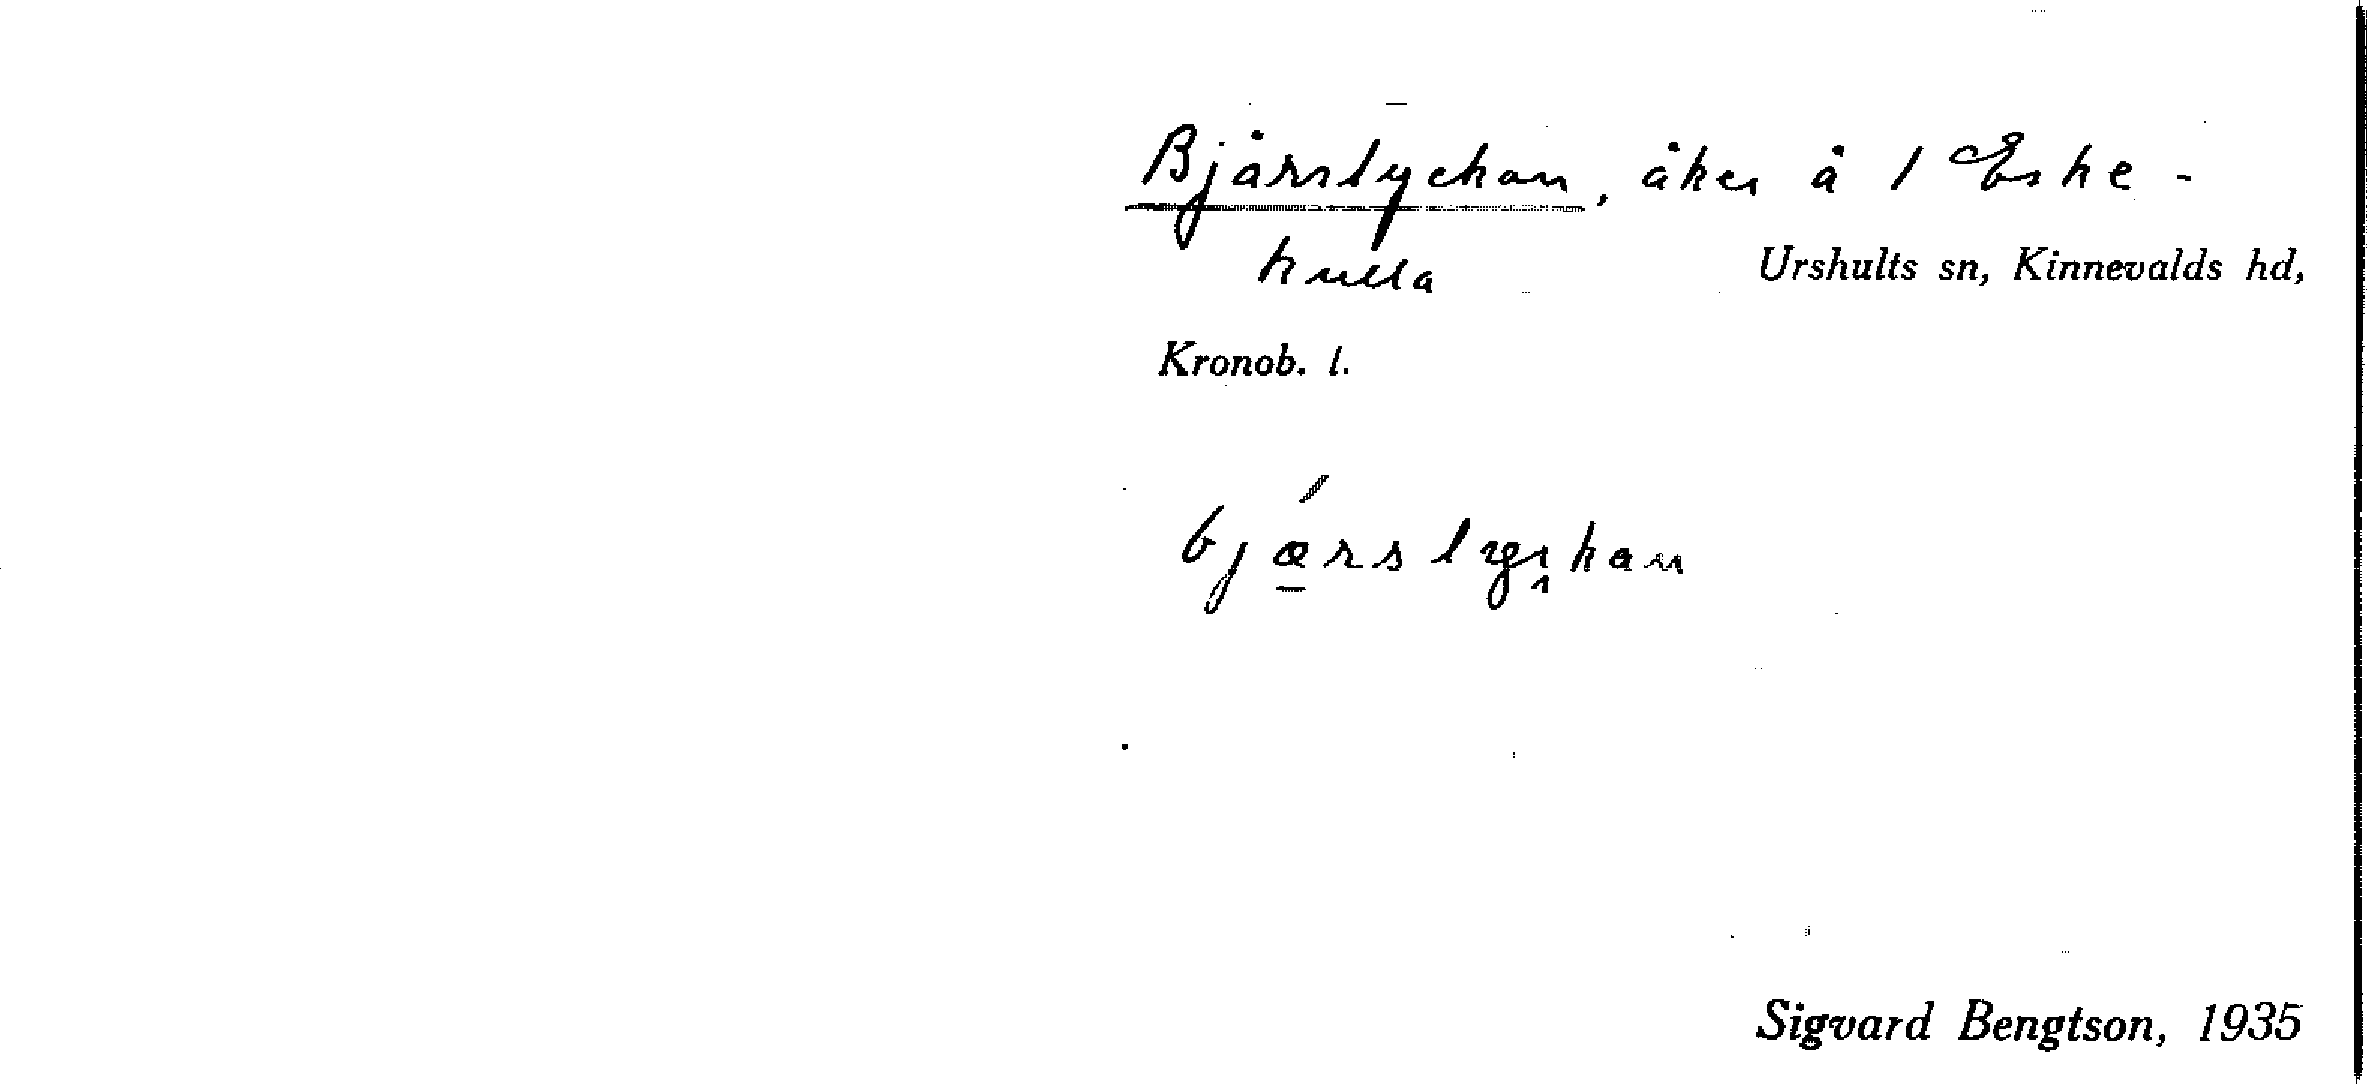 Bjärslyckan, åker å 1 Eske-
kulla Urshults sn, Kinnevalds hd,
Kronob. l.
Sigvard Bengtson, 1935